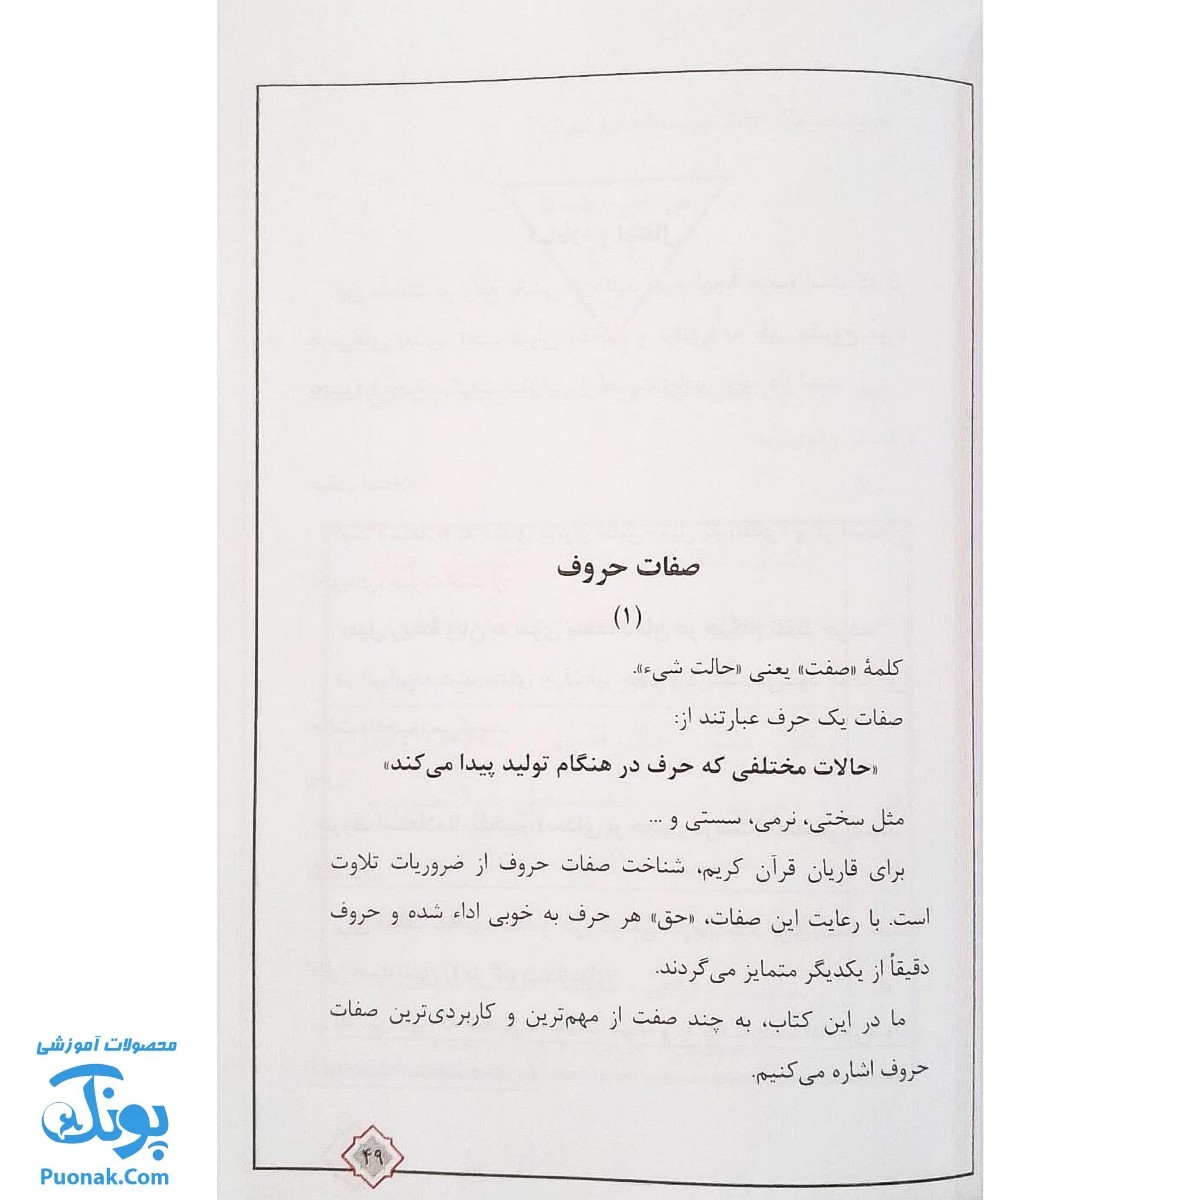 صفات حروف
(۱)
کلمهٔ «صفت» یعنی «حالت شیء».
صفات یک حرف عبارتند از:
«حالات مختلفی که حرف در هنگام تولید پیدا می‌کند»
مثل سختی، نرمی، سستی و ...
برای قاریان قرآن کریم، شناخت صفات حروف از ضروریات تلاوت
است. با رعایت این صفات، «حق» هر حرف به خوبی اداء شده و حروف
دقیقاً از یکدیگر متمایز می‌گردند.
ما در این کتاب، به چند صفت از مهم‌ترین و کاربردی‌ترین صفات
حروف اشاره می‌کنیم.
۴۹
محصولات آموزشی
پونک
Puonak.Com